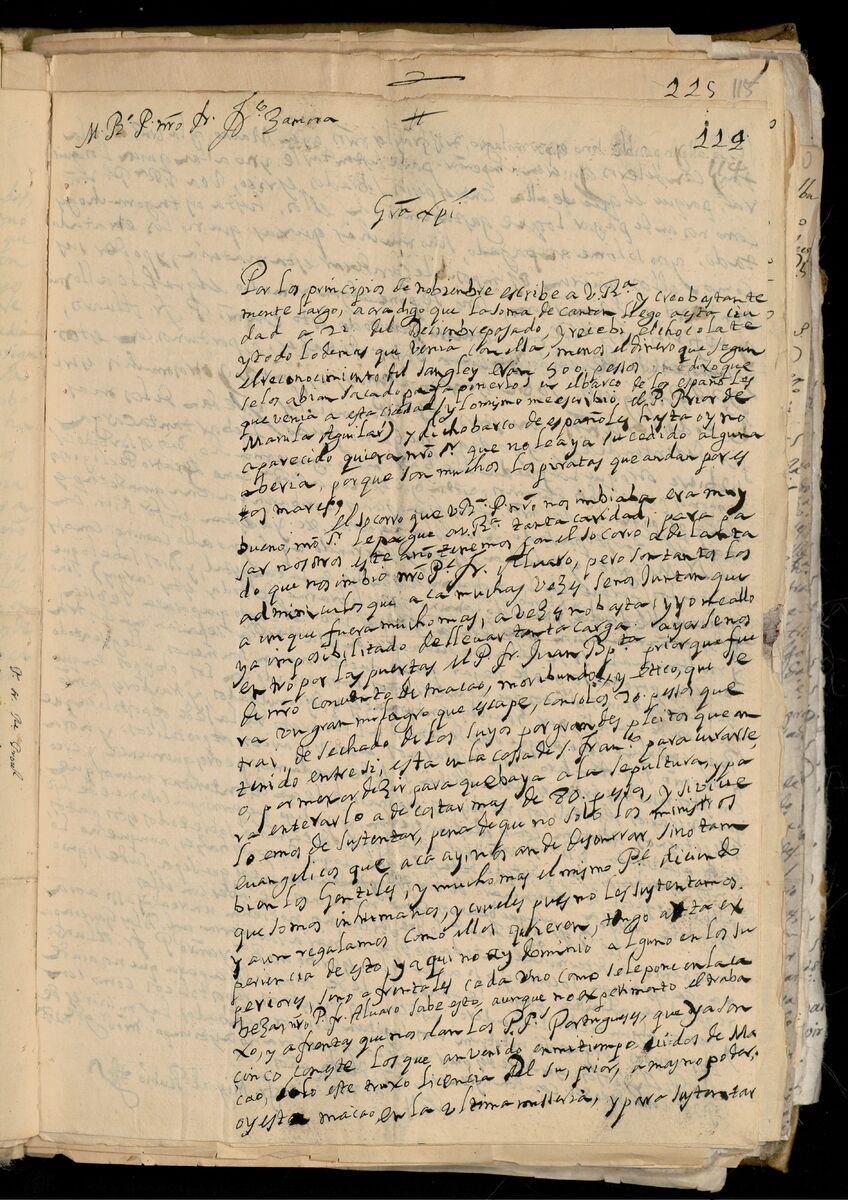 225 115
M. Rdo. P. nro fr. Franco Zamora
114
Gra Xpi
Por los principios de nobiembre escribe a V. Ra y creo bastante
mente largo, aora digo que la soma de canton llego a esta ciu
dad a 22 del Desienbre pasado, y recebi el chocolate
y todo lo demas que venia con ella, menos el dinero que segun
el reconocimiento del sangley eran 300 pesos que dixo que
se los abian sacado para ponerlos en el barco de los españoles
que venia a esta ciudad (y lo mismo me escribio el P. Prior de
Manila Aguilar) y dicho barco de españoles hasta oy no
a parecido quiera nro Sr que no le aya sucedido alguna
aberia, porque son muchos los piratas que andan por es
tos mares.
El socorro que V. Ra P. nro nos imbiaba era muy
bueno, nro Sr le pague a V. Ra tanta caridad, para pa
sar nosotros este año tenemos con el socorro adelanta
do que nos imbio nro Pe fr. Alvaro, pero son tantos los
adminiculos que aca muchas vezes se nos juntan que
aunque fuera mucho mas, a vezes no basta, y yo me allo
ya imposibilitado de llevar tanta carga. ayer se nos
entro por las puertas el P. fr. Juan Bpta prior que fue
de nro convento de macao, moribundo, y etico, que se
ra un gran milagro que escape, con solos 30 pesos que
trai, desechado de los suyos por grandes pleitos que an
tenido entre si, esta en la cassa de S. Franco para curarse,
o, por mexor dezir para que baya a la sepultura, y pa
ra enterarlo a de costar mas de 80 pesos, y si vive
lo emos de sustentar, pena de que no solo los ministros
evangelicos que aca ay nos an de desonrrar, sino tam
bien los Gentiles, y mucho mas el mismo Pe diciendo
que somos inhumanos, y crueles pues no les sustentamos.
y aun regalamos como ellos quieren, tengo arta ex
periencia de esto, y aqui no ay dominio alguno en los su
periores, sino afrentales cada uno como se le pone en la ca
beza nro P. fr. Alvaro sabe esto, aunque no experimento el traba
xo, y afrenta que nos dan los P.Ps Portugueses, que ya son
cinco con este los que an venido en mi tiempo uidos de Ma
cao, solo este truxo licencia de su prior, a mas no poder.
oy esta macao en la ultima miseria, y para sustentar